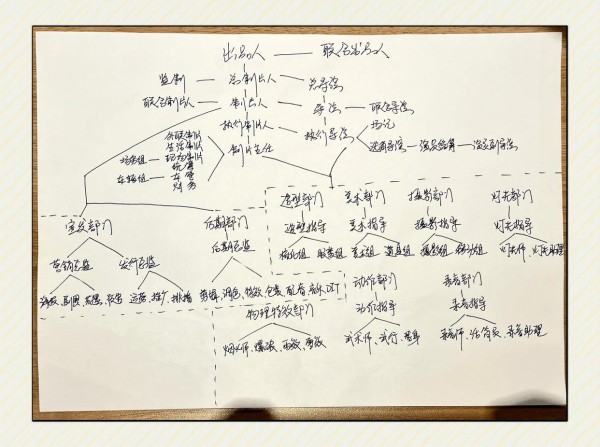 出品人 — 联合出品人
监制 — 总制片人 — 总导演
联合制片人 — 制片人 — 导演 — 联合导演
执行制片人 执行导演 场记
外联制片
生活制片 制片主任
场务组 现场制片 选角导演 — 演员统筹 — 演员副导演
车辆组 车管
财务
宣发部门 后期部门 造型部门 美术部门 摄影部门 灯光部门
营销总监 发行总监 后期总监 造型指导 美术指导 摄影指导 灯光指导
梳化组 服装组 美术组 道具组 摄影组 移动组 灯光师、灯光助理
海报、剧照 运营、推广、排播 剪辑、调色、特效、包装、配音、音乐、DIT
动作部门 录音部门
物理特效部门 动作指导 录音指导
烟火师、爆破、雨效、雪效 武术师、武行、替身 录音师、话筒员、录音助理